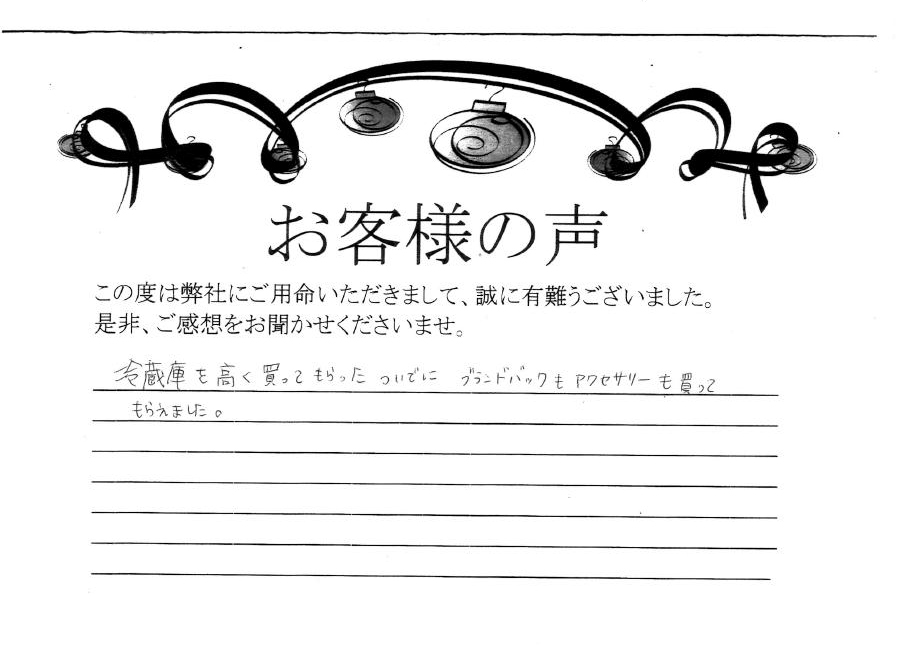 お客様の声
この度は弊社にご用命いただきまして、誠に有難うございました。
是非、ご感想をお聞かせくださいませ。
冷蔵庫を高く買ってもらったついでに ブランドバックもアクセサリーも買って
もらえました。